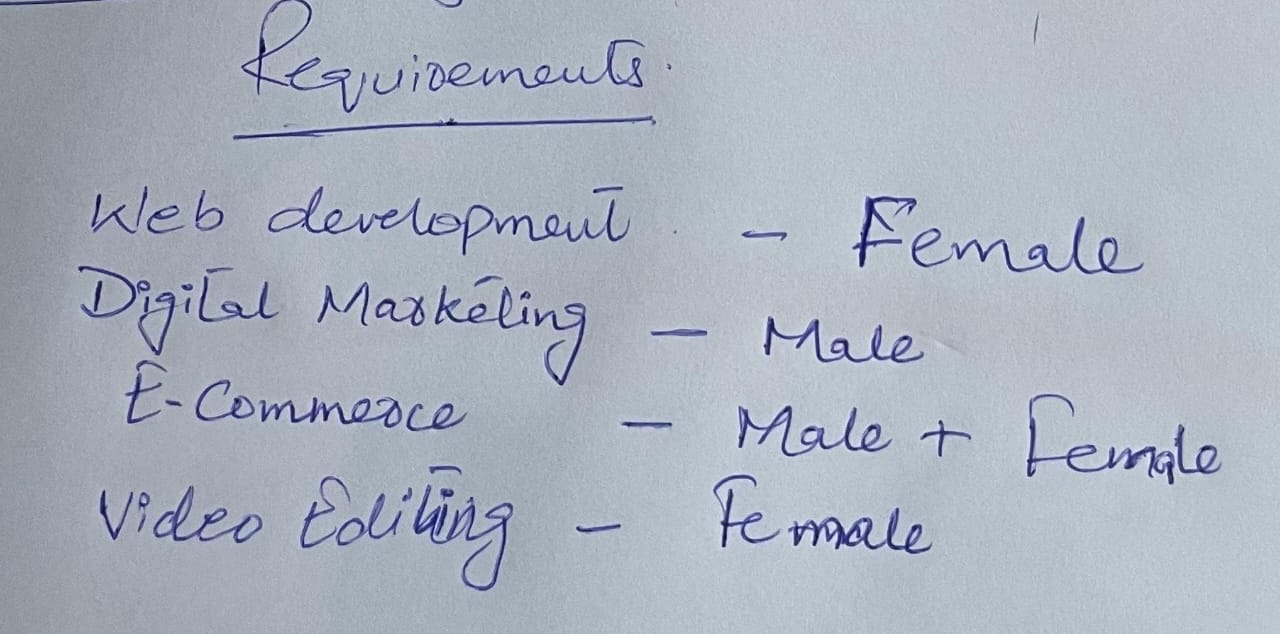 Requirements.
Web development - Female
Digital Marketing - Male
E-Commerce - Male + Female
Video Editing - Female